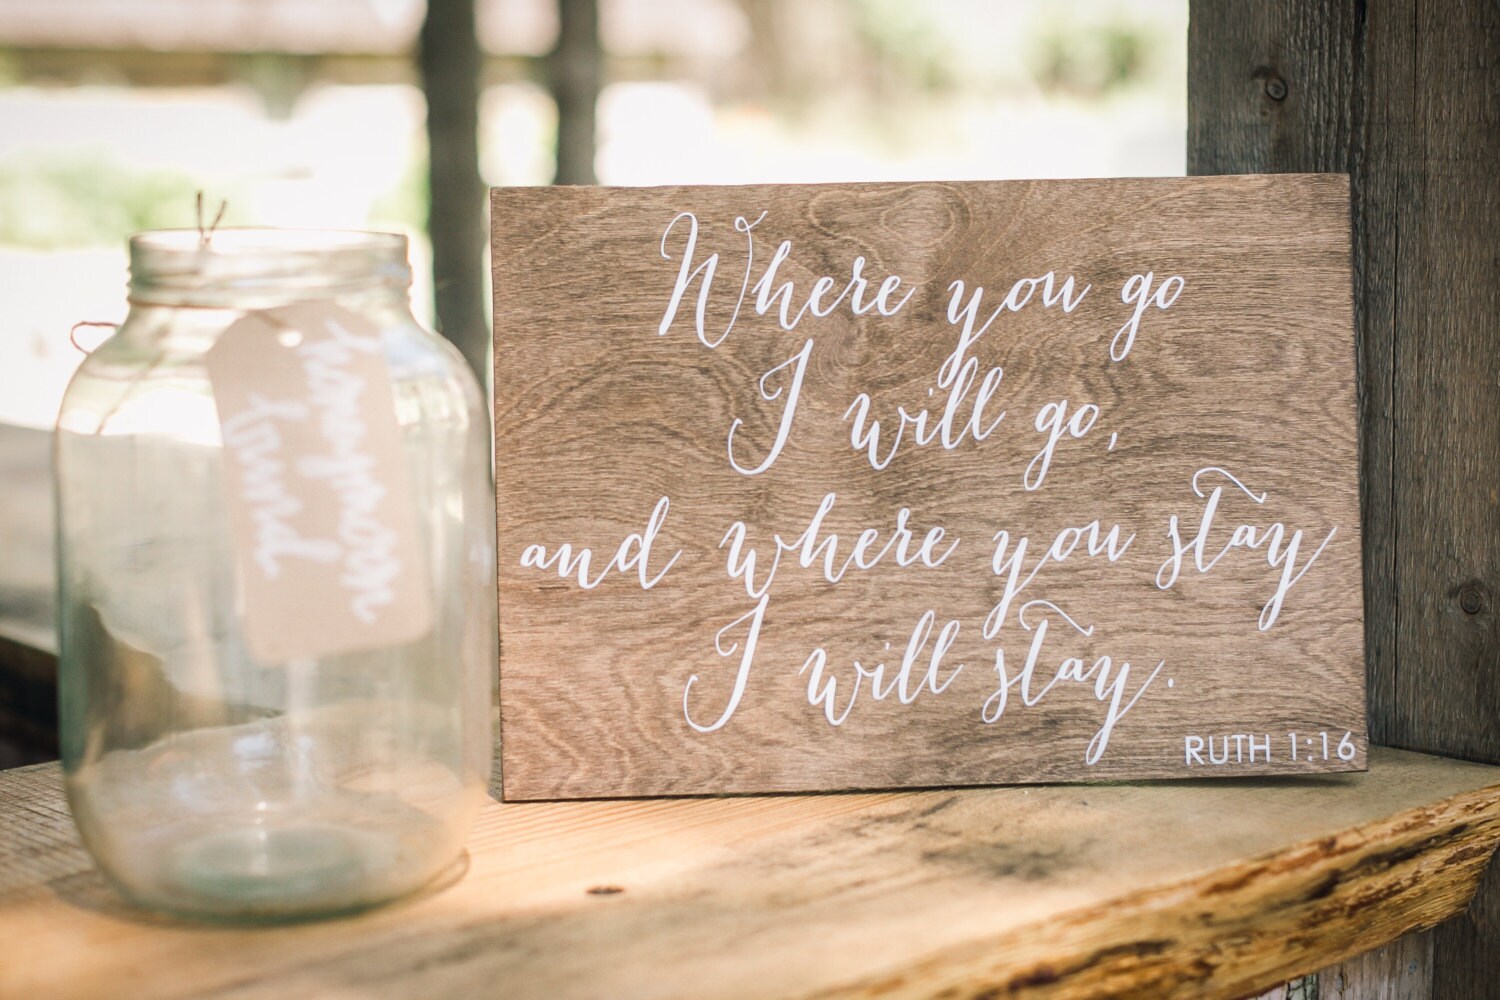 Where you go
I will go,
and where you stay
I will stay.
RUTH 1:16
honeymoon
fund